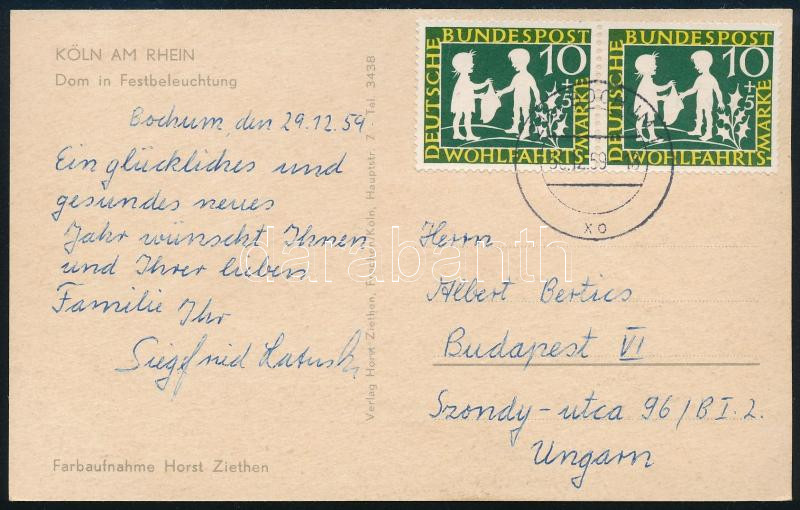 KÖLN AM RHEIN
Dom in Festbeleuchtung
Bochum, den 29.12.59
Ein glückliches und
gesundes neues
Jahr wünscht Ihnen
und Ihrer lieben
Familie Ihr
Siegfried
Farbaufnahme Horst Ziethen
Verlag Horst Ziethen, Köln, Hauptstr. 7 · Tel. 3438
DEUTSCHE BUNDESPOST
10
+5
WOHLFAHRTS-MARKE
DEUTSCHE BUNDESPOST
10
+5
WOHLFAHRTS-MARKE
30.12.59
xo
Herrn
Albert Bertics
Budapest VI
Szondy-utca 96/B I. 2.
Ungarn
darabanth